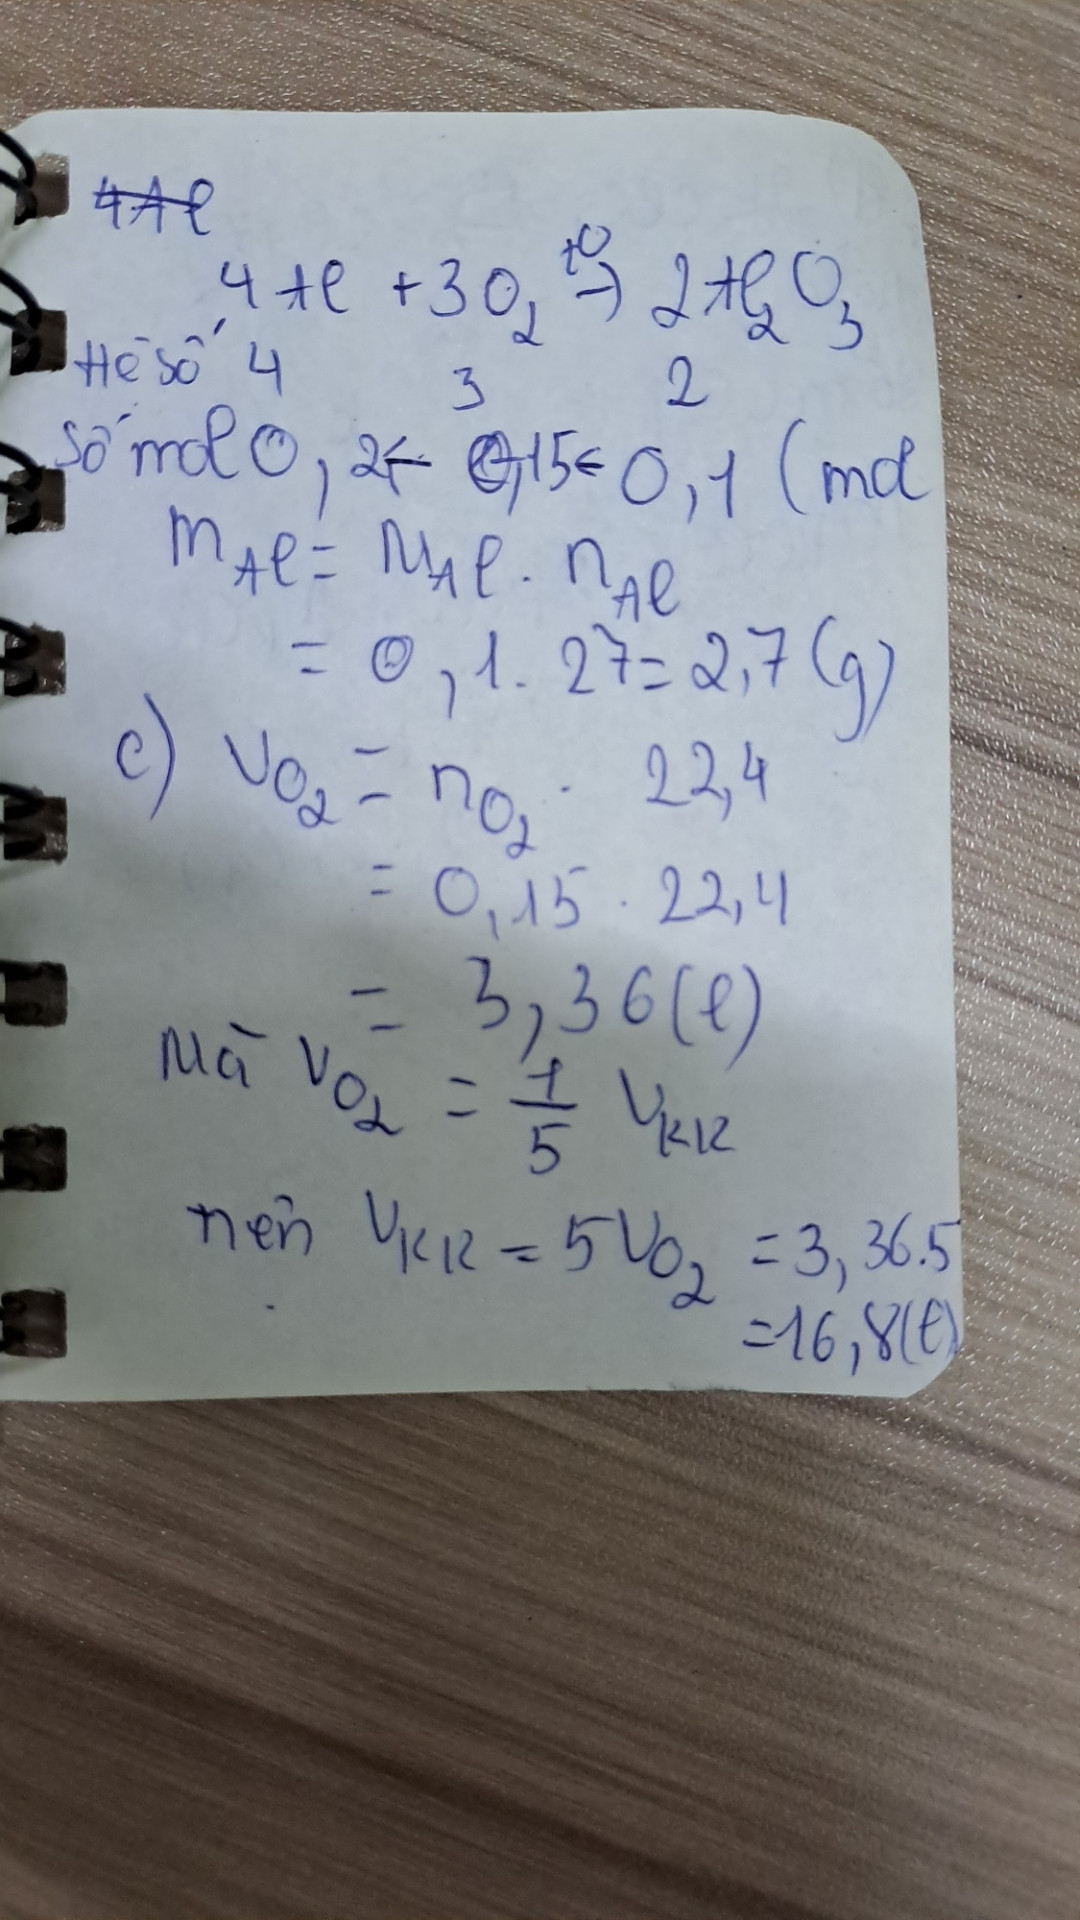 4Al
4Al + 3O₂ t⁰→ 2Al₂O₃
Hệ số 4 3 2
Số mol 0,2← 0,15← 0,1 (mol
mAl = MAl . nAl
= 0,1 . 27 = 2,7 (g)
c) VO₂ = nO₂ . 22,4
= 0,15 . 22,4
= 3,36 (l)
Mà VO₂ = 1/5 VKK
nên VKK = 5VO₂ = 3,36.5
= 16,8(l)